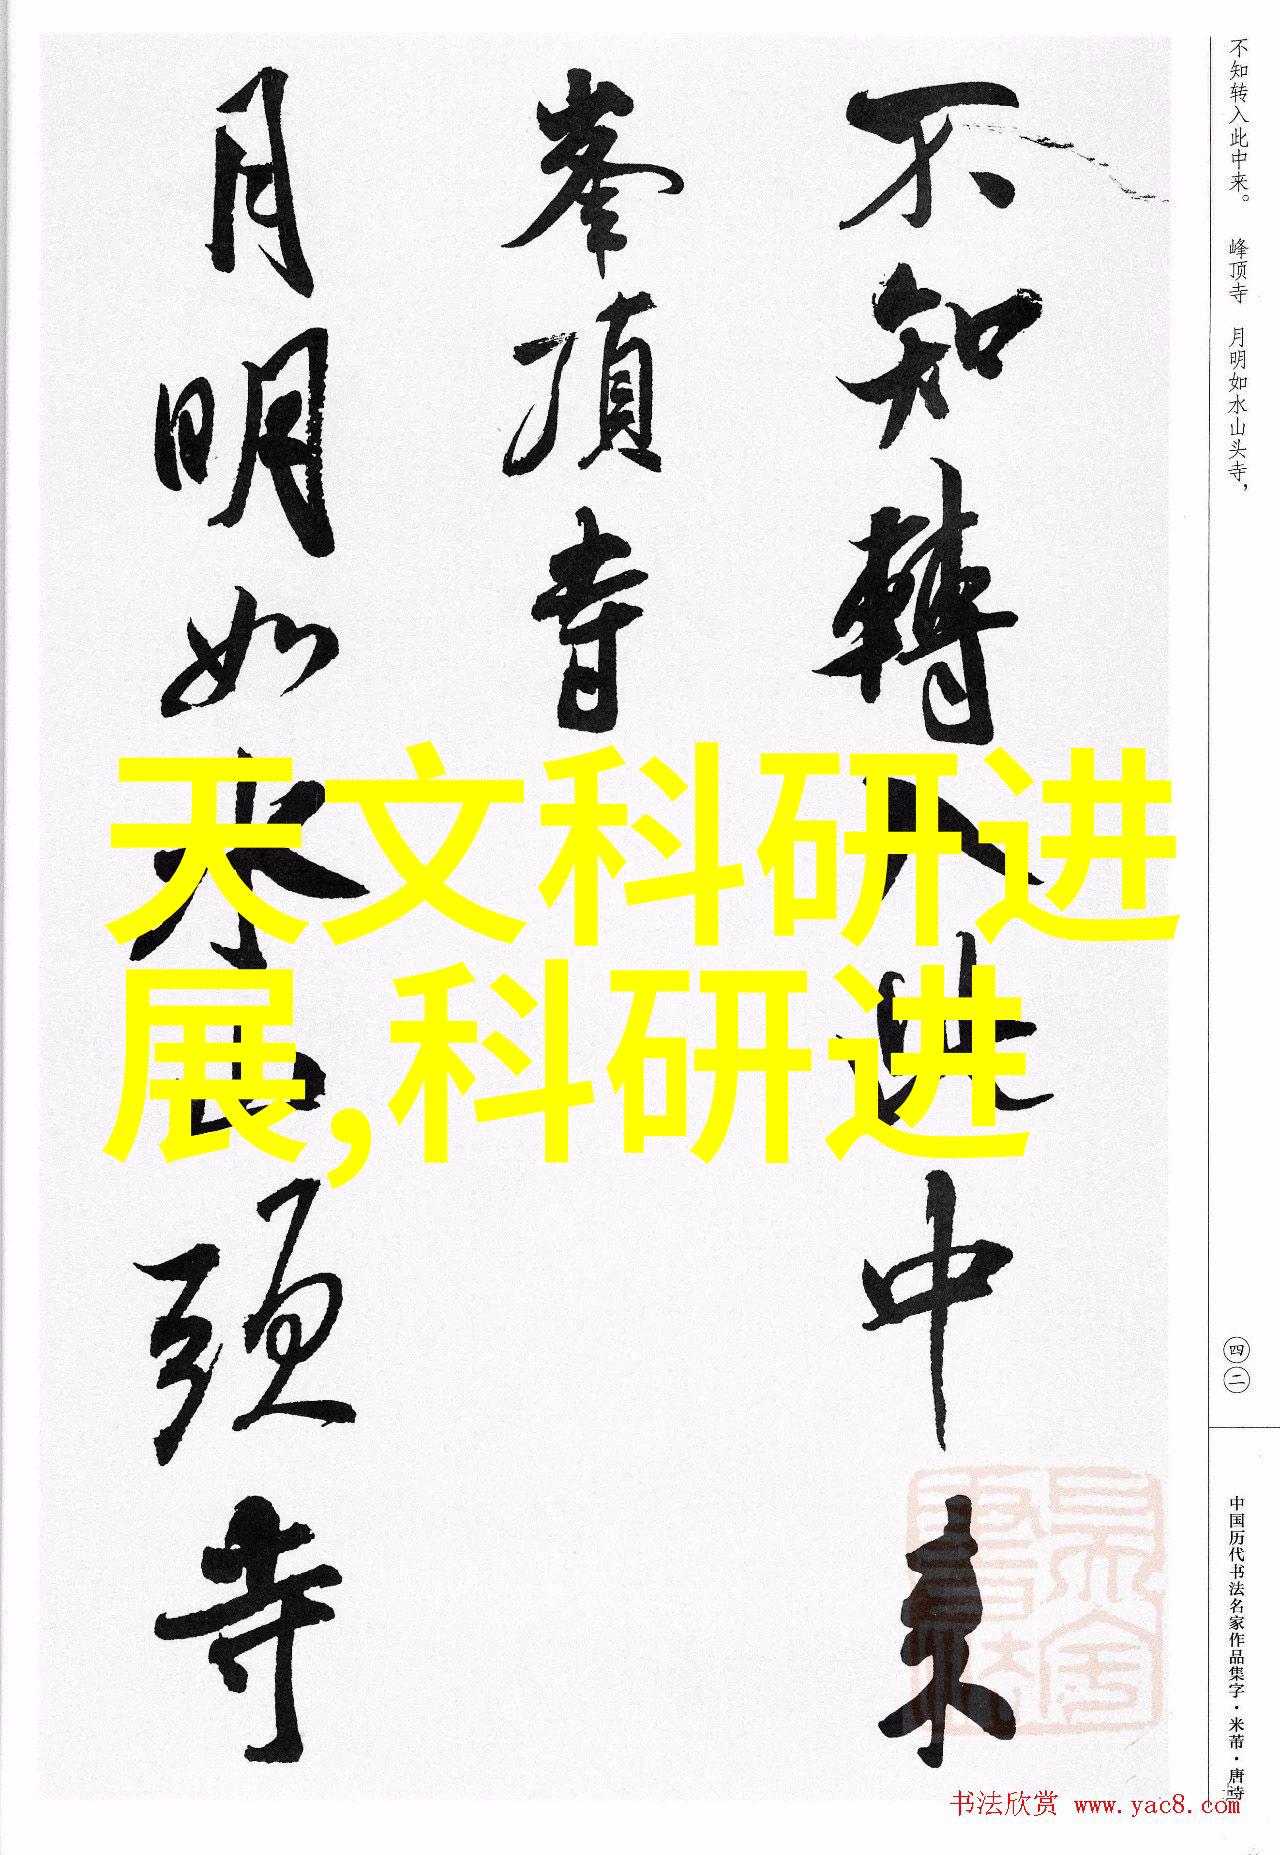 不知轉入此中来
峯頂寺
月明如水山頭寺
天文科研进
展,科研进
不知转入此中来。 峰顶寺 月明如水山头寺，
四二
中国历代书法名家作品集字·米芾·唐诗
书法欣赏 www.yac8.com